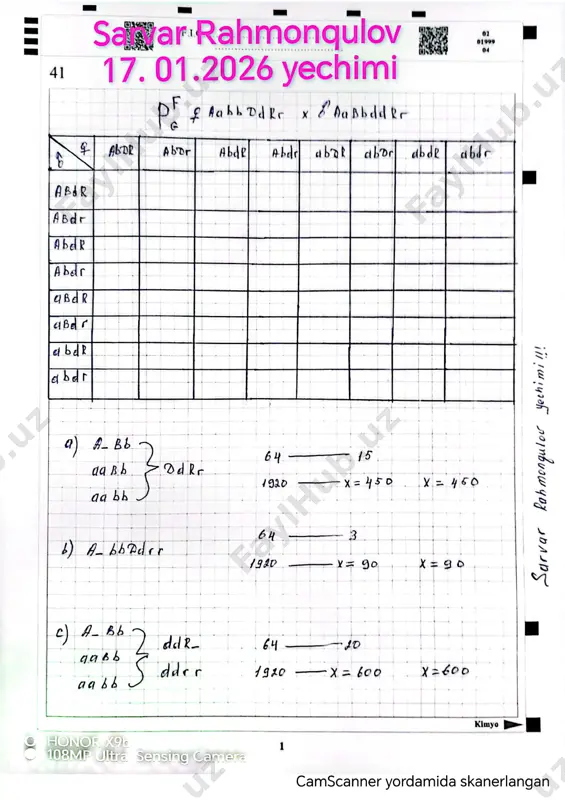 Sarvar Rahmonqulov
17. 01.2026 yechimi
01
01999
04
41
P F G ♀ AabbDdRr x ♂ AaBbddRr
♂ ♀ AbDR AbDr AbdR Abdr abDR abDr abdR abdr
ABdR
ABdr
AbdR
Abdr
aBdR
aBdr
abdR
abdr
a) A_Bb
aaBb DdRr
aabb
64 — 15
1920 — x=450 x=450
b) A_bbDdrr
64 — 3
1920 — x=90 x=90
c) A_Bb
aaBb
aabb
ddR_
ddrr
64 — 20
1920 — x=600 x=600
Sarvar Rahmonqulov yechimi!!!
Kimyo
1
HONOR X9b
108MP Ultra Sensing Camera
CamScanner yordamida skanerlangan
FaylHub.uz